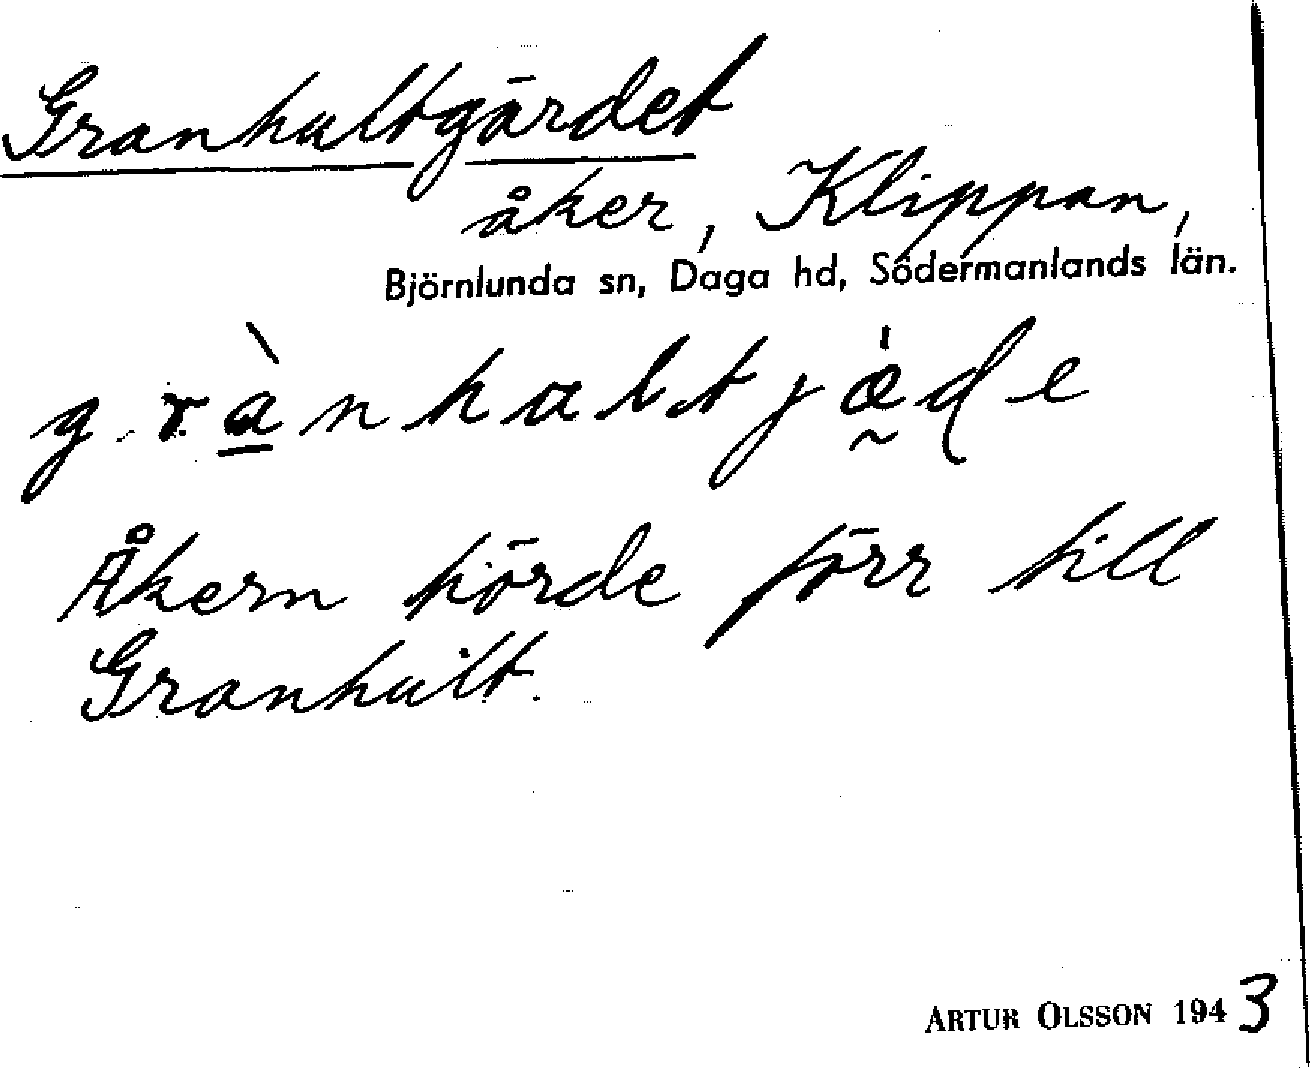 Granhultgärdet
åker, Klippan,
Björnlunda sn, Daga hd, Södermanlands län.
Åkern hörde förr till
Granhult.
ARTUR OLSSON 1943